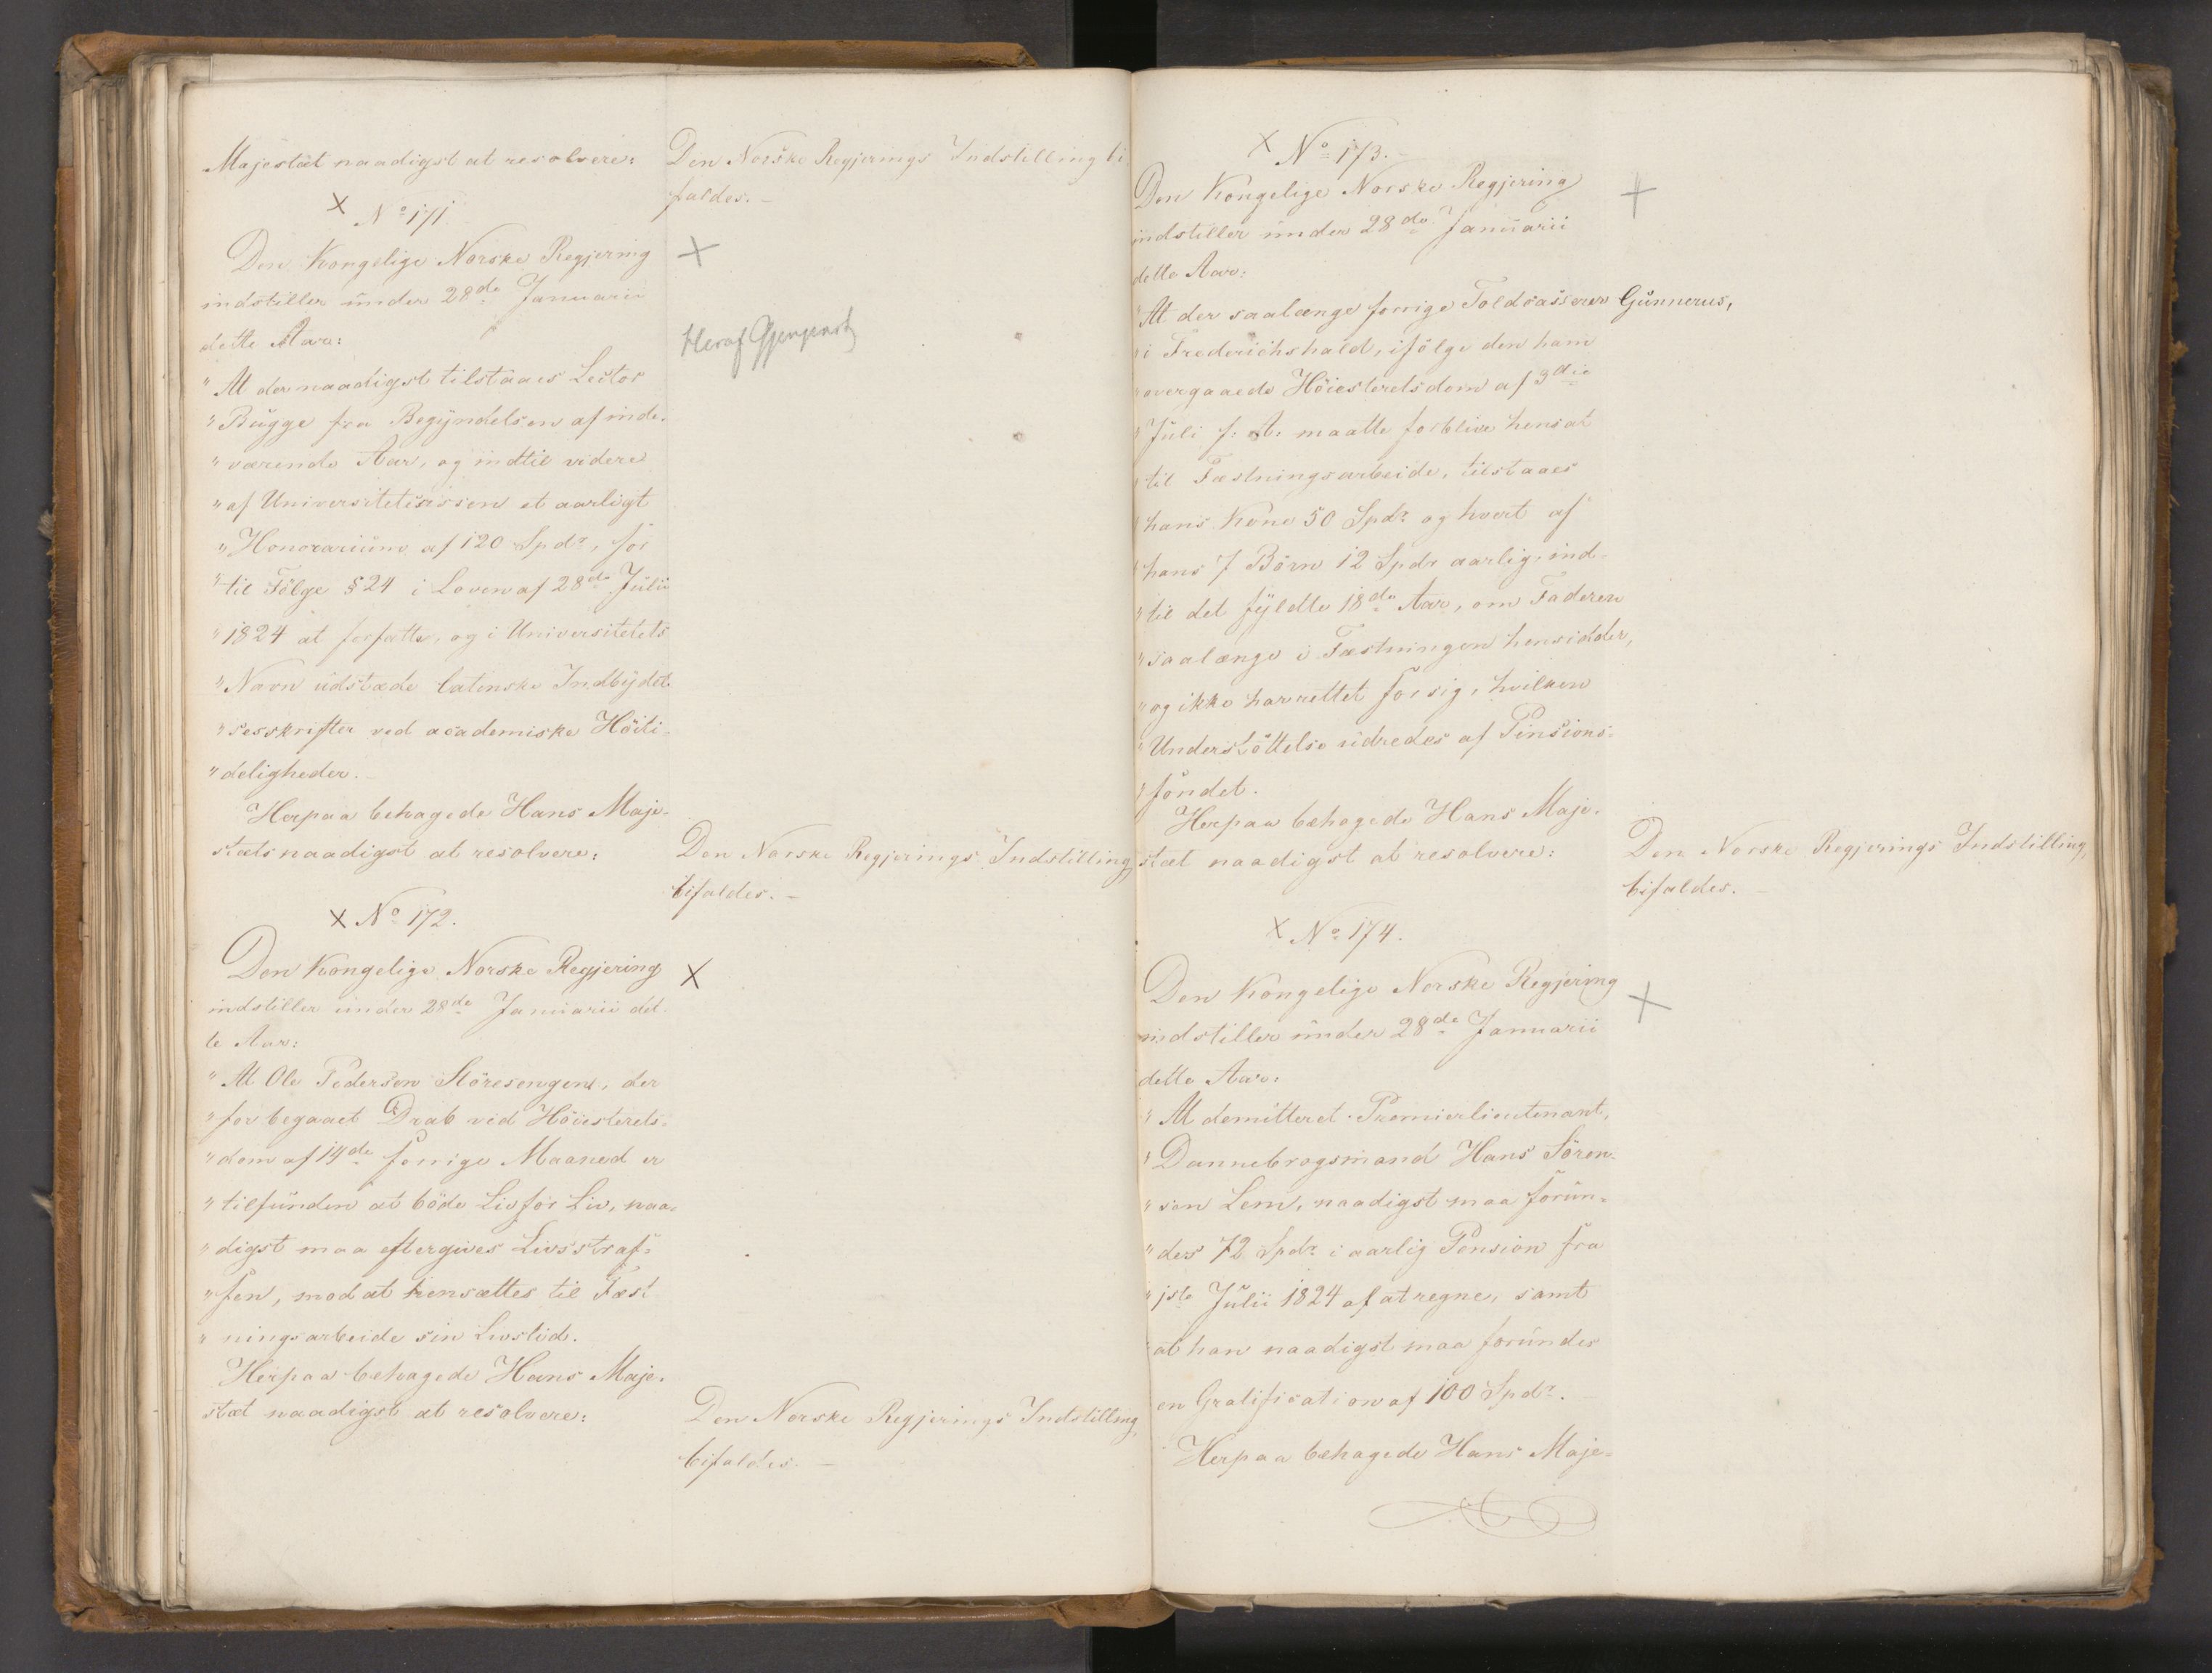 Majestæt naadigst at resolvere:
Den Norske Regjerings Indstilling bi
faldes. –
× No 171
Den Kongelige Norske Regjering
indstiller under 28de Januarii
dette Aar:
×
Heraf Gjenpart
" At der naadigst tilstaaes Lector
" Bugge fra Begyndelsen af inde-
" værende Aar, og indtil videre
" af Universitetscassen et aarligt
" Honorarium af 120 Spdr, for
" til Følge § 24 i Loven af 28de Julii
" 1824 at forfatte, og i Universitetets
" Navn udstæde latinske Indbydel-
" sesskrifter ved academiske Höiti-
" deligheder. –
Herpaa behagede Hans Maje-
stæts naadigst at resolvere:
Den Norske Regjerings Indstilling
bifaldes. –
× No 172.
Den Kongelige Norske Regjering
indstiller under 28de Januarii det-
te Aar:
×
" At Ole Pedersen Störesengen, der
" for begaaet Drab ved Höiesterets-
" dom af 14de forrige Maaned er
" tilfunden at böde Liv for Liv, naa-
" digst maa eftergives Livsstraf-
" fen, mod at hensættes til Fæst
" ningsarbeide sin Livstid.
Herpaa behagede Hans Maje-
stæt naadigst at resolvere:
Den Norske Regjerings Indstilling,
bifaldes. –
× No 173.
Den Kongelige Norske Regjering
indstiller under 28de Januarii
dette Aar:
+
" At der saalænge forrige Toldcasserer Gunnerus,
" i Frederichshald, ifölge den ham
" overgaaede Höiesteretsdom af 3die
" Juli f: A: maatte forblive hensat
" til Fæstningsarbeide, tilstaaes
" hans Kone 50 Spdr og hvert af
" hans 7 Börn 12 Spdr aarlig, ind-
" til det fyldte 18de Aar, om Faderen
" saalænge i Fæstningen hensidder,
" og ikke har rettet for sig, hvilken
" Understöttelse udredes af Pensions-
" fondet.
Herpaa behagede Hans Maje-
stæt naadigst at resolvere:
Den Norske Regjerings Indstilling,
bifaldes. –
× No 174.
Den Kongelige Norske Regjering
indstiller under 28de Januarii
dette Aar:
×
" At demitteret Premierlieutenant,
" Dannebrogsmand Hans Sören-
" sen Lem, naadigst maa forun-
" des 72 Spdr i aarlig Pension fra
" 1ste Julii 1824 af at regne, samt
" at han naadigst maa forundes
en Gratification af 100 Spdr. –
Herpaa behagede Hans Maje-